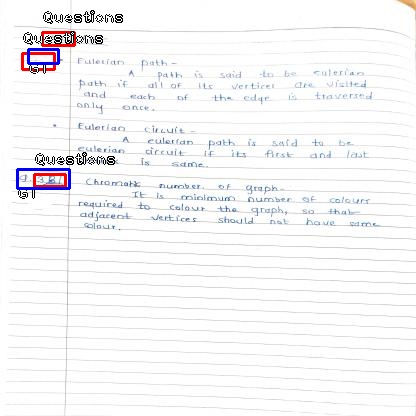 Questions
Questions
G1
Eulerian path -
A path is said to be eulerian
path if all of its vertices are visited
and each of the edge is traversed
only once.
• Eulerian circuit -
A eulerian path is said to be
eulerian circuit if its first and last
is same.
Questions
G1
Chromatic number of graph -
It is minimum number of colours
required to colour the graph, so that
adjacent vertices should not have same
colour.